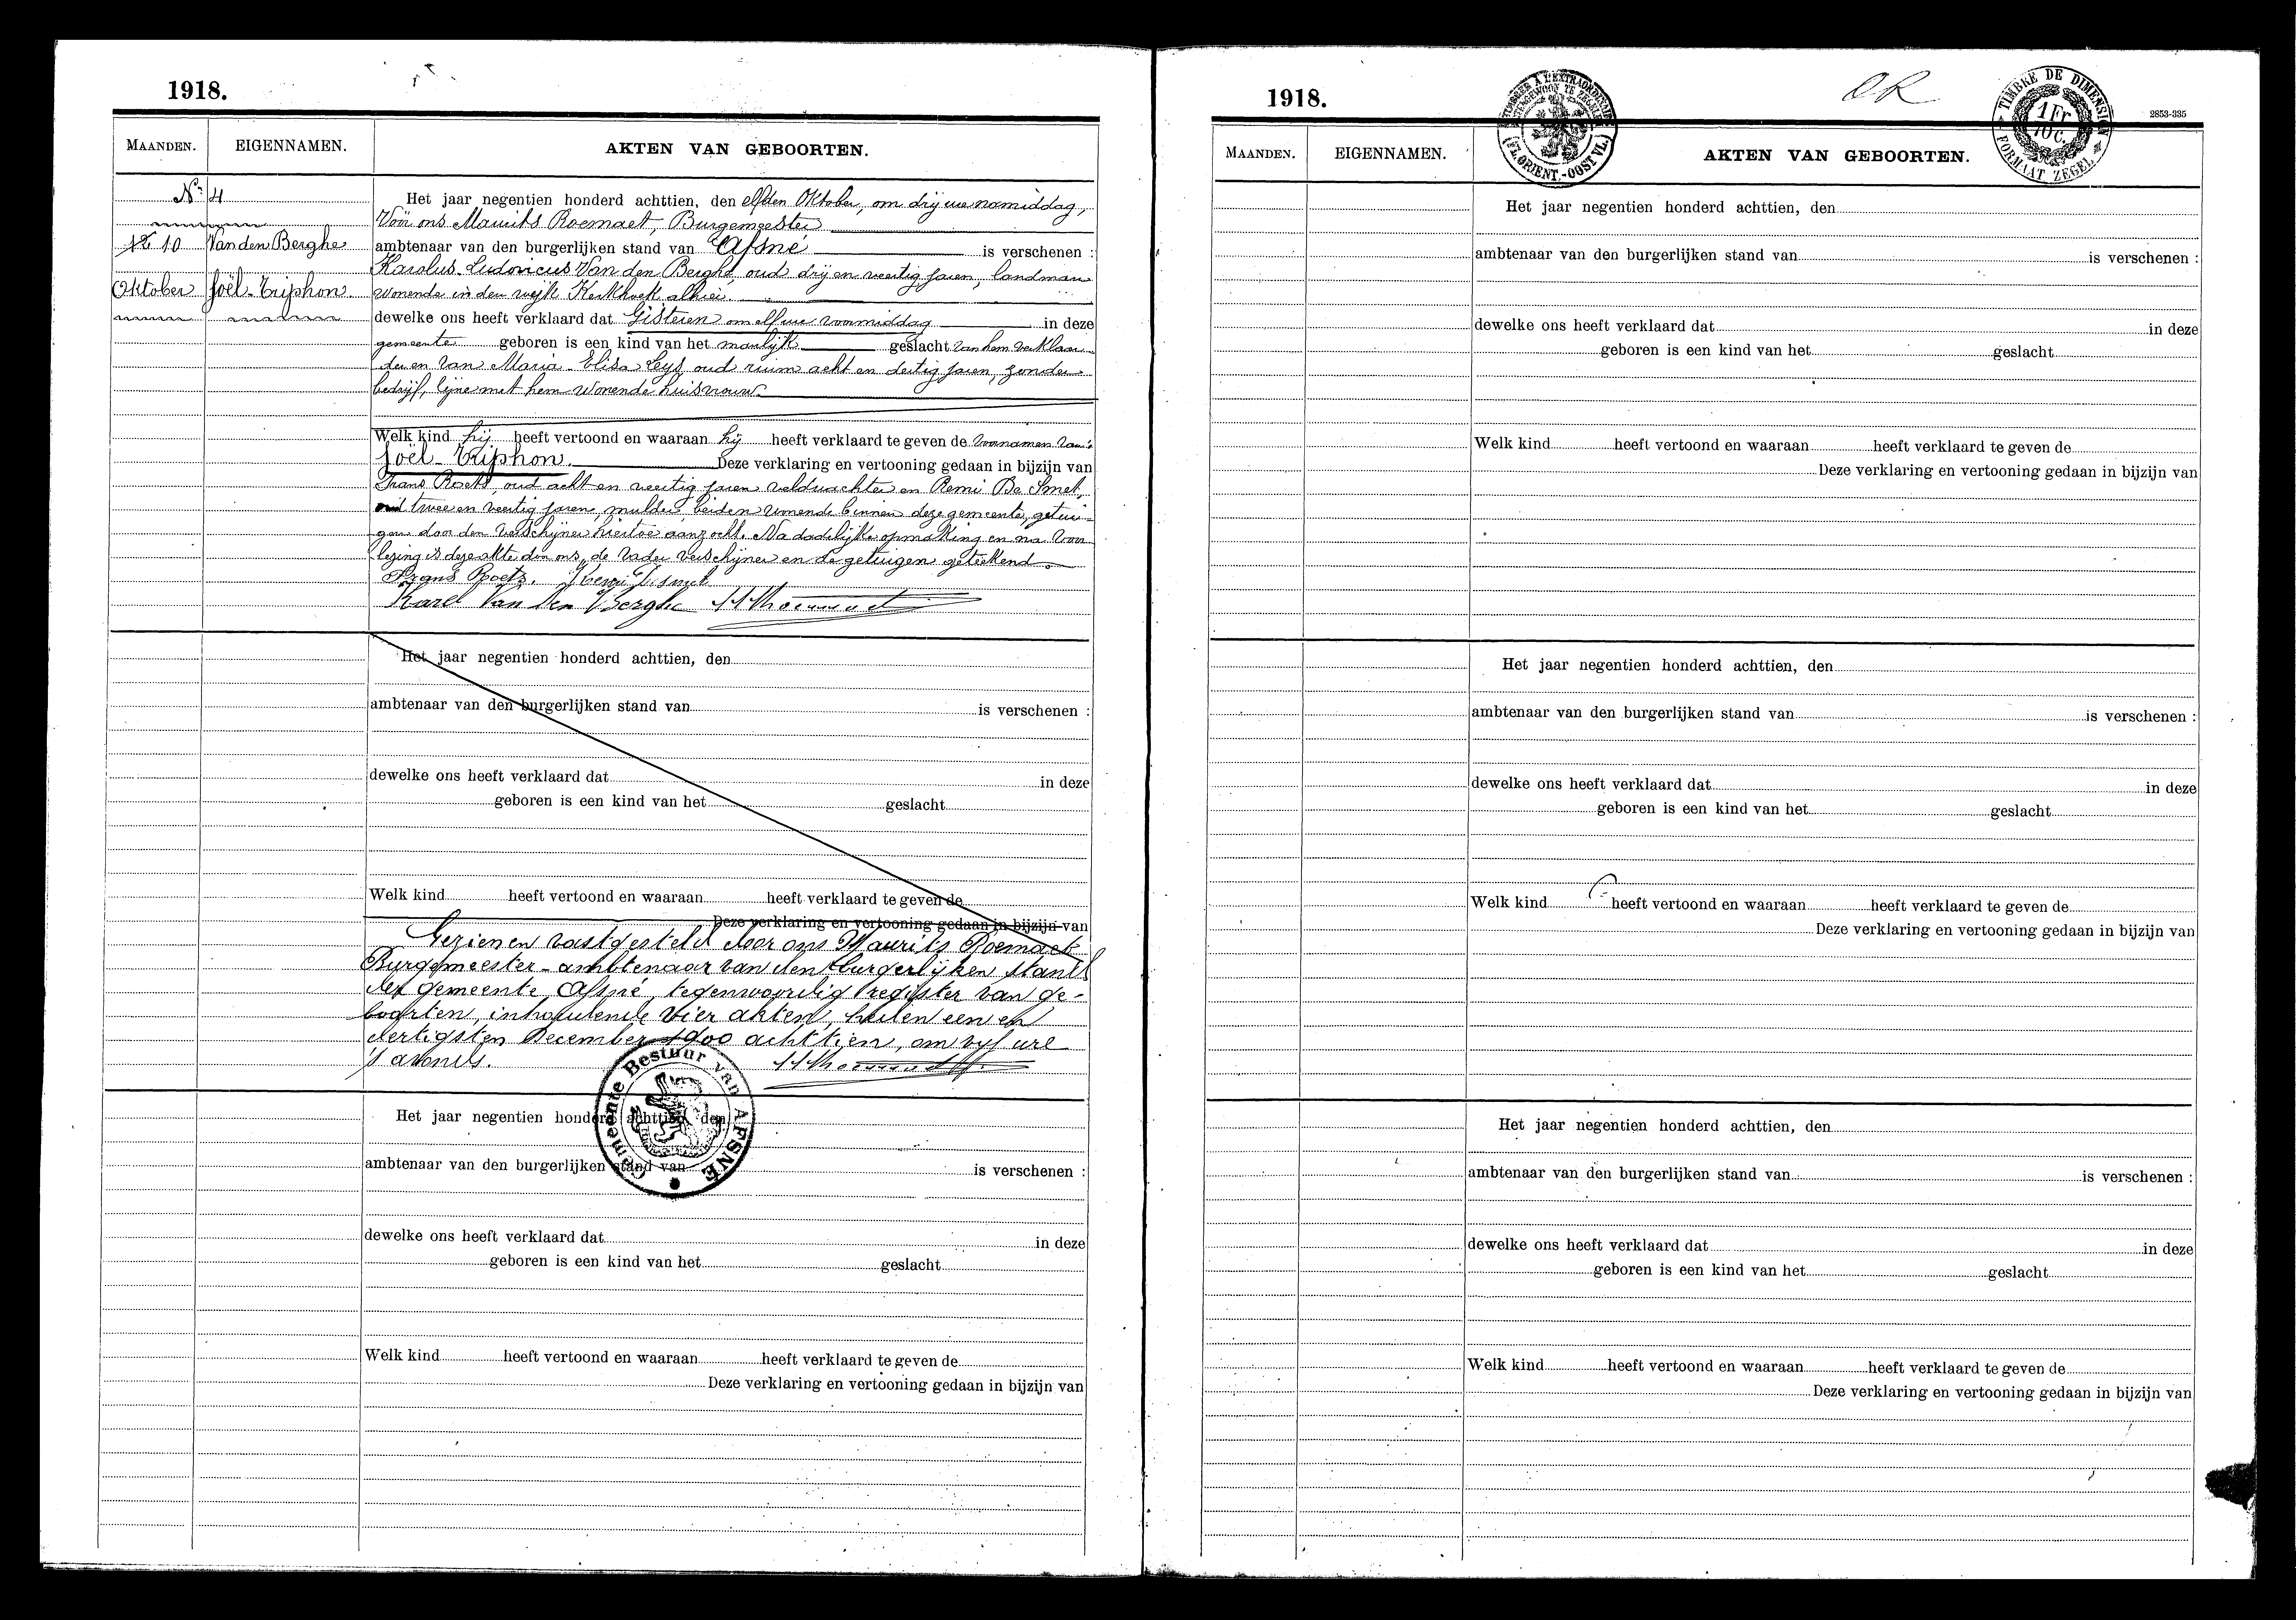 1918.
MAANDEN. EIGENNAMEN. AKTEN VAN GEBOORTEN.
No 4
Het jaar negentien honderd achttien, den elfden Oktober, om drij ure namiddag,
Voor ons Maurits Roemaet, Burgemeester
10 Van den Berghe ambtenaar van den burgerlijken stand van Afsné is verschenen :
Karolus Ludovicus Van den Berghe, oud drij en veertig jaren, landman
Oktober Joël-Triphon wonende in den wijk Kerkhoek alhier
dewelke ons heeft verklaard dat Gisteren om elf ure voormiddag in deze
gemeente geboren is een kind van het manlijk geslacht van hem verklaar-
der en van Maria Elisa Leys oud ruim acht en dertig jaren, zonder
bedrijf, zijne met hem wonende huisvrouw.
Welk kind hij heeft vertoond en waaraan hij heeft verklaard te geven de voornamen van :
Joël-Triphon. Deze verklaring en vertooning gedaan in bijzijn van
Frans Roets, oud acht en veertig jaren veldwachter en Remi De Smet,
oud twee en veertig jaren, mulder, beiden wonende binnen deze gemeente, getui-
gen door den verschijner hiertoe aanzocht. Na dadelijke opmaking en na voor-
lezing is deze akte door ons, de vader verschijner en de getuigen geteekend.
Frans Roets. Remi Desmet
Karel Van den Berghe M Roemaet
Het jaar negentien honderd achttien, den
ambtenaar van den burgerlijken stand van is verschenen :
dewelke ons heeft verklaard dat in deze
geboren is een kind van het geslacht
Welk kind heeft vertoond en waaraan heeft verklaard te geven de
Deze verklaring en vertooning gedaan in bijzijn van
Gezien en vastgesteld door ons Maurits Roemaet
Burgemeester-ambtenaar van den burgerlijken stand
der gemeente Afsné, tegenwoordig register van ge-
boorten, inhoudende vier akten, heden een en
dertigsten December 1900 achttien, om vijf ure
's avonds. M Roemaet
Gemeente Bestuur van AFSNÉ
Het jaar negentien honderd achttien, den
ambtenaar van den burgerlijken stand van is verschenen :
dewelke ons heeft verklaard dat in deze
geboren is een kind van het geslacht
Welk kind heeft vertoond en waaraan heeft verklaard te geven de
Deze verklaring en vertooning gedaan in bijzijn van
1918.
TIMBRE DE DIMENSION
1 Fr
10 c.
FORMAAT ZEGEL
2853-335
MAANDEN. EIGENNAMEN. AKTEN VAN GEBOORTEN.
Het jaar negentien honderd achttien, den
ambtenaar van den burgerlijken stand van is verschenen :
dewelke ons heeft verklaard dat in deze
geboren is een kind van het geslacht
Welk kind heeft vertoond en waaraan heeft verklaard te geven de
Deze verklaring en vertooning gedaan in bijzijn van
Het jaar negentien honderd achttien, den
ambtenaar van den burgerlijken stand van is verschenen :
dewelke ons heeft verklaard dat in deze
geboren is een kind van het geslacht
Welk kind heeft vertoond en waaraan heeft verklaard te geven de
Deze verklaring en vertooning gedaan in bijzijn van
Het jaar negentien honderd achttien, den
ambtenaar van den burgerlijken stand van is verschenen :
dewelke ons heeft verklaard dat in deze
geboren is een kind van het geslacht
Welk kind heeft vertoond en waaraan heeft verklaard te geven de
Deze verklaring en vertooning gedaan in bijzijn van